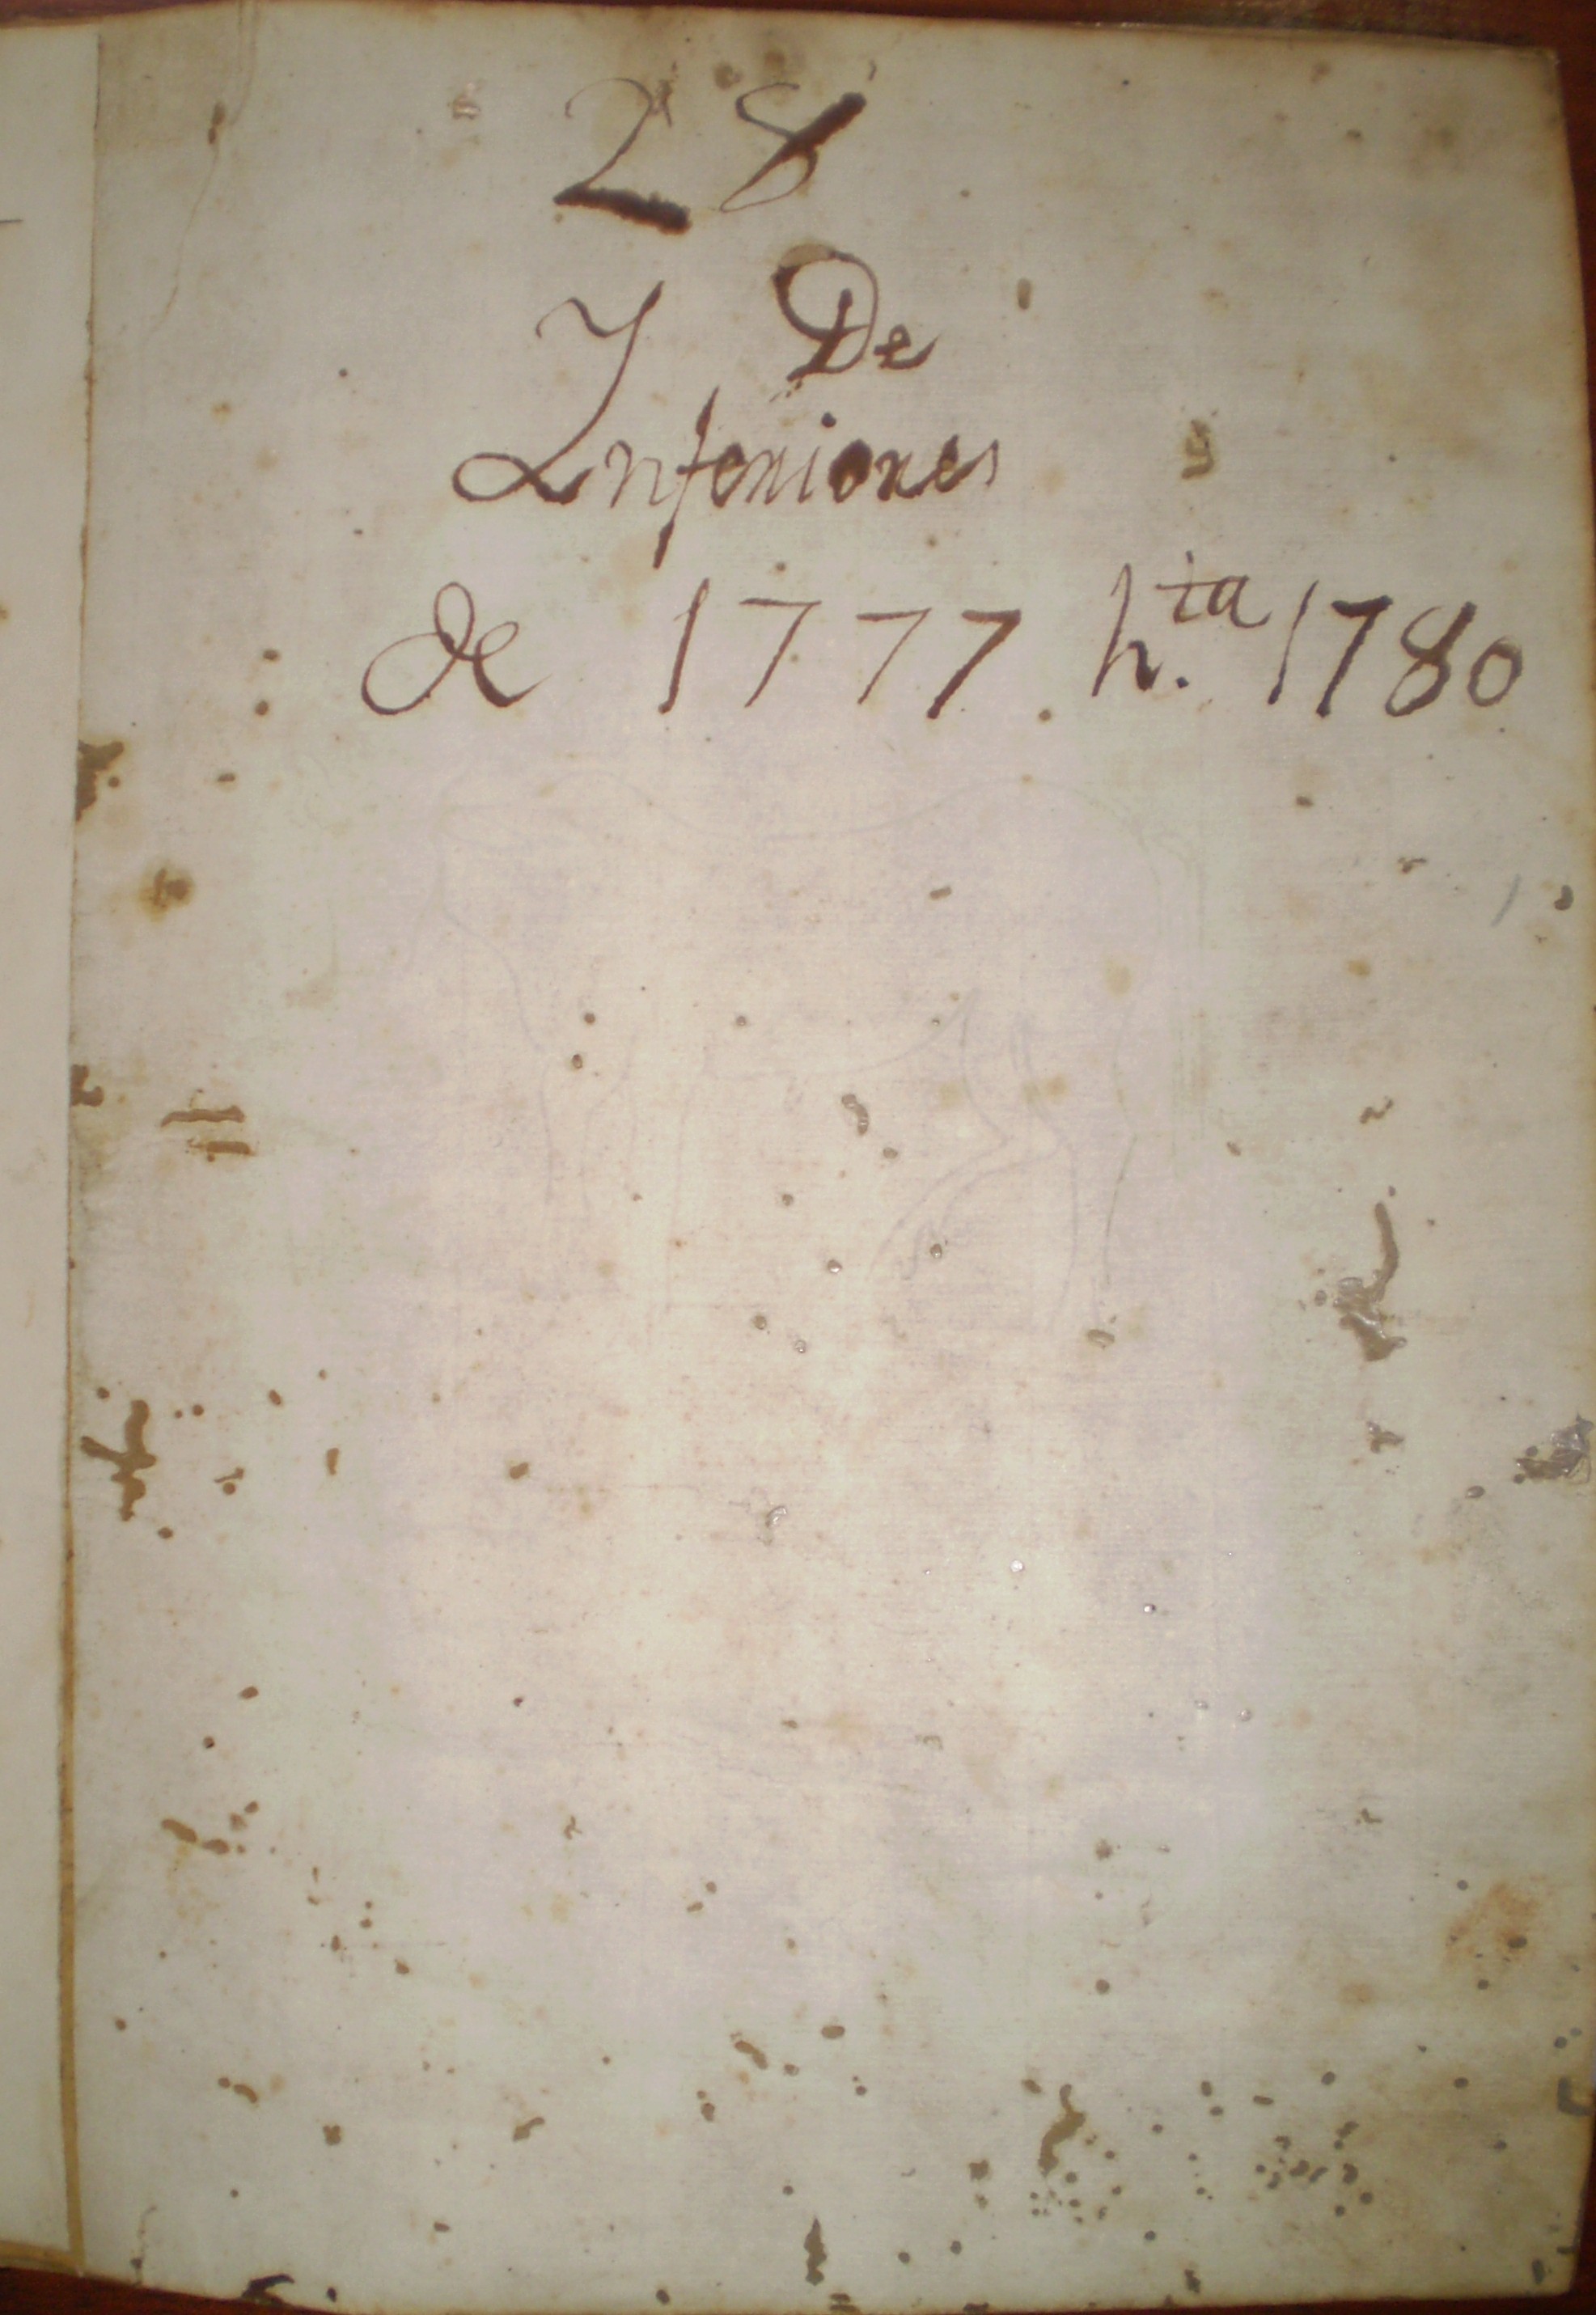 28
De
Inferiores
de 1777 h.ta 1780